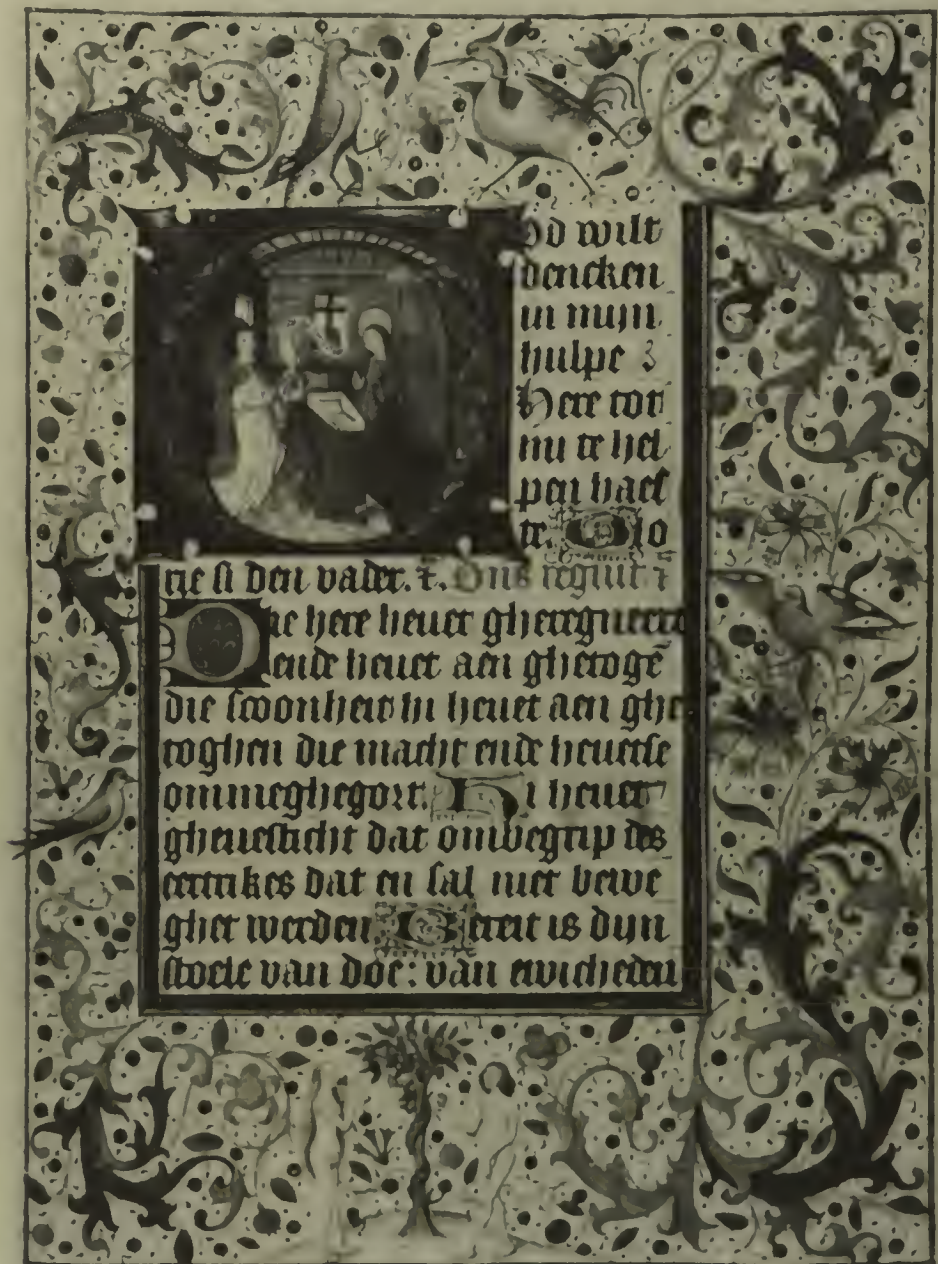 od wilt
dencken
in mijn
hulpe ⁊
Here tot
mi te hel
pen haes
te. Glo
rie si den vader. ⁊. Dns regnit ⁊
Die here heuet gheregneert
ende heuet aen ghetogē
die scoonheit hi heuet aen ghe
toghen die macht ende heuetse
ommeghegort. Hi heuet
gheuesticht dat ombegrip des
eertrikes dat en sal niet bewe
ghet werden Bereit is dijn
stoele van doe: van ewicheden